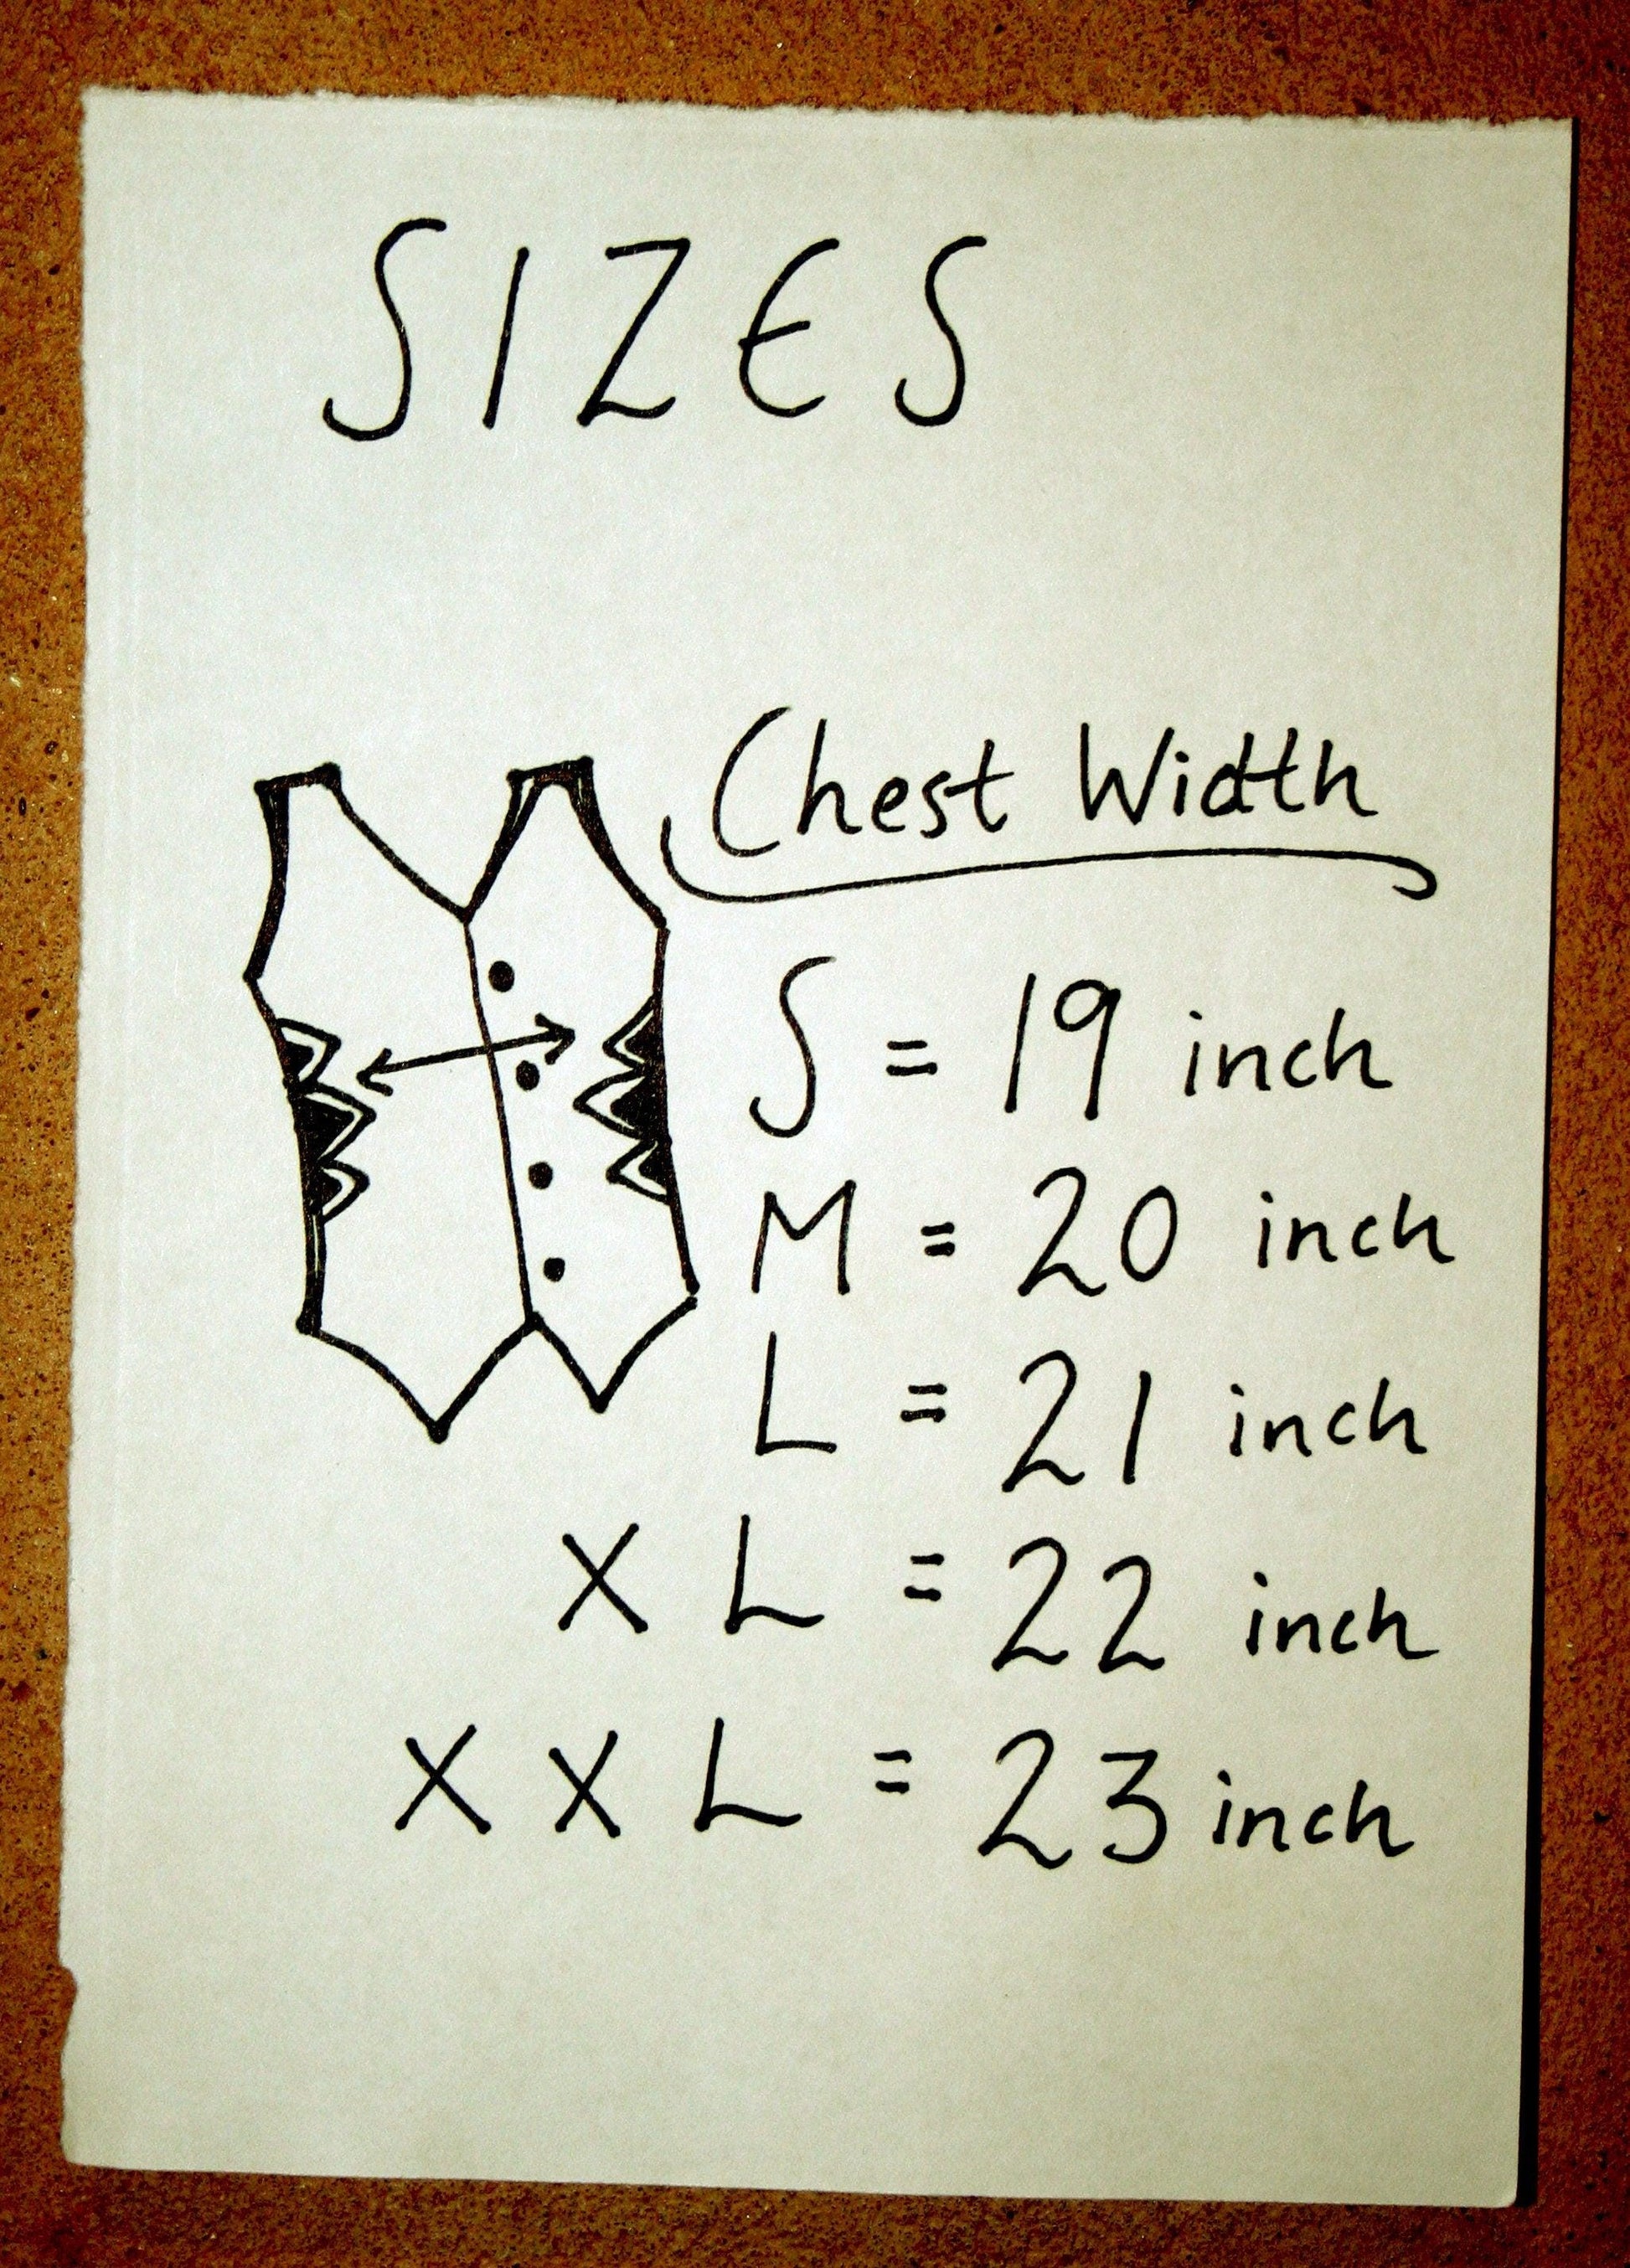 SIZES
Chest Width
S = 19 inch
M = 20 inch
L = 21 inch
XL = 22 inch
XXL = 23 inch